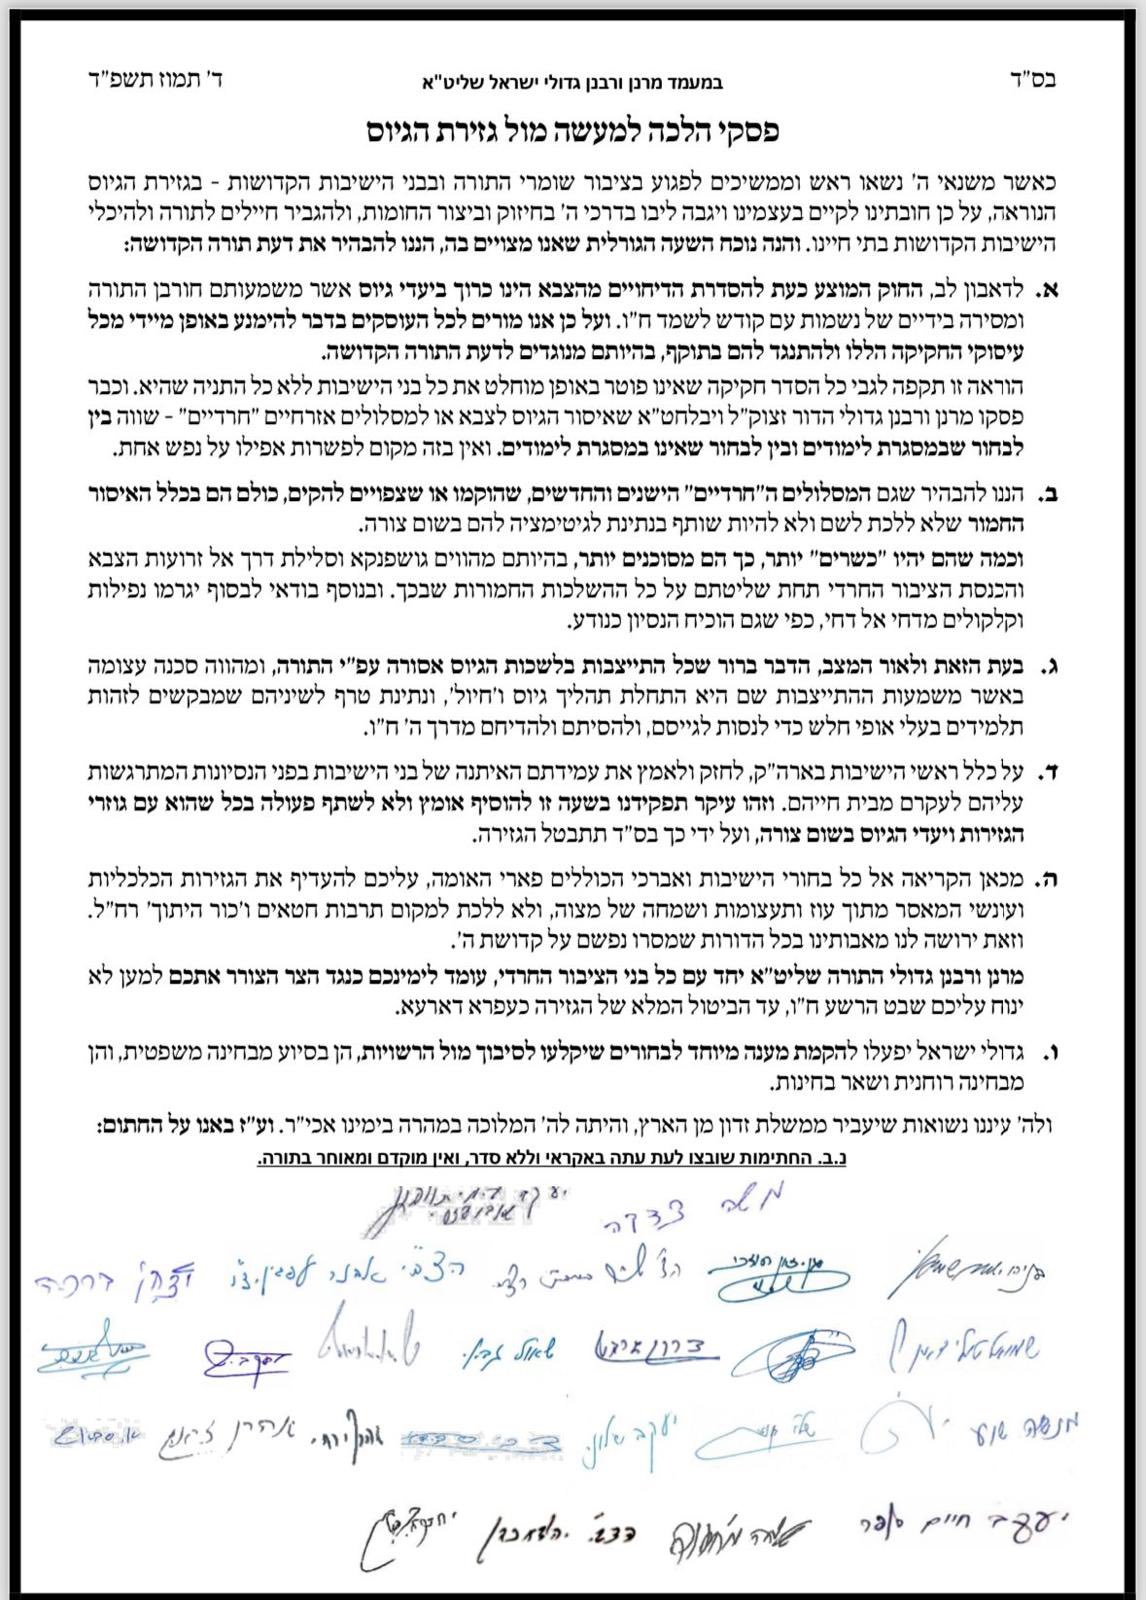 בס"ד
במעמד מרנן ורבנן גדולי ישראל שליט"א
ד' תמוז תשפ"ד
פסקי הלכה למעשה מול גזירת הגיוס
כאשר משנאי ה' נשאו ראש וממשיכים לפגוע בציבור שומרי התורה ובבני הישיבות הקדושות - בגזירת הגיוס
הנוראה, על כן חובתינו לקיים בעצמינו ויגבה ליבו בדרכי ה' בחיזוק וביצור החומות, ולהגביר חיילים לתורה ולהיכלי
הישיבות הקדושות בתי חיינו. והנה נוכח השעה הגורלית שאנו מצויים בה, הננו להבהיר את דעת תורה הקדושה:
א. לדאבון לב, החוק המוצע כעת להסדרת הדיחויים מהצבא הינו כרוך ביעדי גיוס אשר משמעותם חורבן התורה
ומסירה בידיים של נשמות עם קודש לשמד ח"ו. ועל כן אנו מורים לכל העוסקים בדבר להימנע באופן מיידי מכל
עיסוקי החקיקה הללו ולהתנגד להם בתוקף, בהיותם מנוגדים לדעת התורה הקדושה.
הוראה זו תקפה לגבי כל הסדר חקיקה שאינו פוטר באופן מוחלט את כל בני הישיבות ללא כל התניה שהיא. וכבר
פסקו מרנן ורבנן גדולי הדור זצוק"ל ויבלחט"א שאיסור הגיוס לצבא או למסלולים אזרחיים "חרדיים" - שווה בין
לבחור שבמסגרת לימודים ובין לבחור שאינו במסגרת לימודים. ואין בזה מקום לפשרות אפילו על נפש אחת.
ב. הננו להבהיר שגם המסלולים ה"חרדיים" הישנים והחדשים, שהוקמו או שצפויים להקים, כולם הם בכלל האיסור
החמור שלא ללכת לשם ולא להיות שותף בנתינת לגיטימציה להם בשום צורה.
וכמה שהם יהיו "כשרים" יותר, כך הם מסוכנים יותר, בהיותם מהווים גושפנקא וסלילת דרך אל זרועות הצבא
והכנסת הציבור החרדי תחת שליטתם על כל ההשלכות החמורות שבכך. ובנוסף בודאי לבסוף יגרמו נפילות
וקלקולים מדחי אל דחי, כפי שגם הוכיח הנסיון כנודע.
ג. בעת הזאת ולאור המצב, הדבר ברור שכל התייצבות בלשכות הגיוס אסורה עפ"י התורה, ומהווה סכנה עצומה
באשר משמעות ההתייצבות שם היא התחלת תהליך גיוס ו'חיול', ונתינת טרף לשיניהם שמבקשים לזהות
תלמידים בעלי אופי חלש כדי לנסות לגייסם, ולהסיתם ולהדיחם מדרך ה' ח"ו.
ד. על כלל ראשי הישיבות בארה"ק, לחזק ולאמץ את עמידתם האיתנה של בני הישיבות בפני הנסיונות המתרגשות
עליהם לעקרם מבית חייהם. וזהו עיקר תפקידנו בשעה זו להוסיף אומץ ולא לשתף פעולה בכל שהוא עם גוזרי
הגזירות ויעדי הגיוס בשום צורה, ועל ידי כך בס"ד תתבטל הגזירה.
ה. מכאן הקריאה אל כל בחורי הישיבות ואברכי הכוללים פארי האומה, עליכם להעדיף את הגזירות הכלכליות
ועונשי המאסר מתוך עוז ותעצומות ושמחה של מצוה, ולא ללכת למקום תרבות חטאים ו'כור היתוך' רח"ל.
וזאת ירושה לנו מאבותינו בכל הדורות שמסרו נפשם על קדושת ה'.
מרנן ורבנן גדולי התורה שליט"א יחד עם כל בני הציבור החרדי, עומד לימינכם כנגד הצר הצורר אתכם למען לא
ינוח עליכם שבט הרשע ח"ו, עד הביטול המלא של הגזירה כעפרא דארעא.
ו. גדולי ישראל יפעלו להקמת מענה מיוחד לבחורים שיקלעו לסיבוך מול הרשויות, הן בסיוע מבחינה משפטית, והן
מבחינה רוחנית ושאר בחינות.
ולה' עיננו נשואות שיעביר ממשלת זדון מן הארץ, והיתה לה' המלוכה במהרה בימינו אכי"ר. וע"ז באנו על החתום:
נ.ב. החתימות שובצו לעת עתה באקראי וללא סדר, ואין מוקדם ומאוחר בתורה.
משה צדקה
מנשה שוע
יעקב חיים סופר